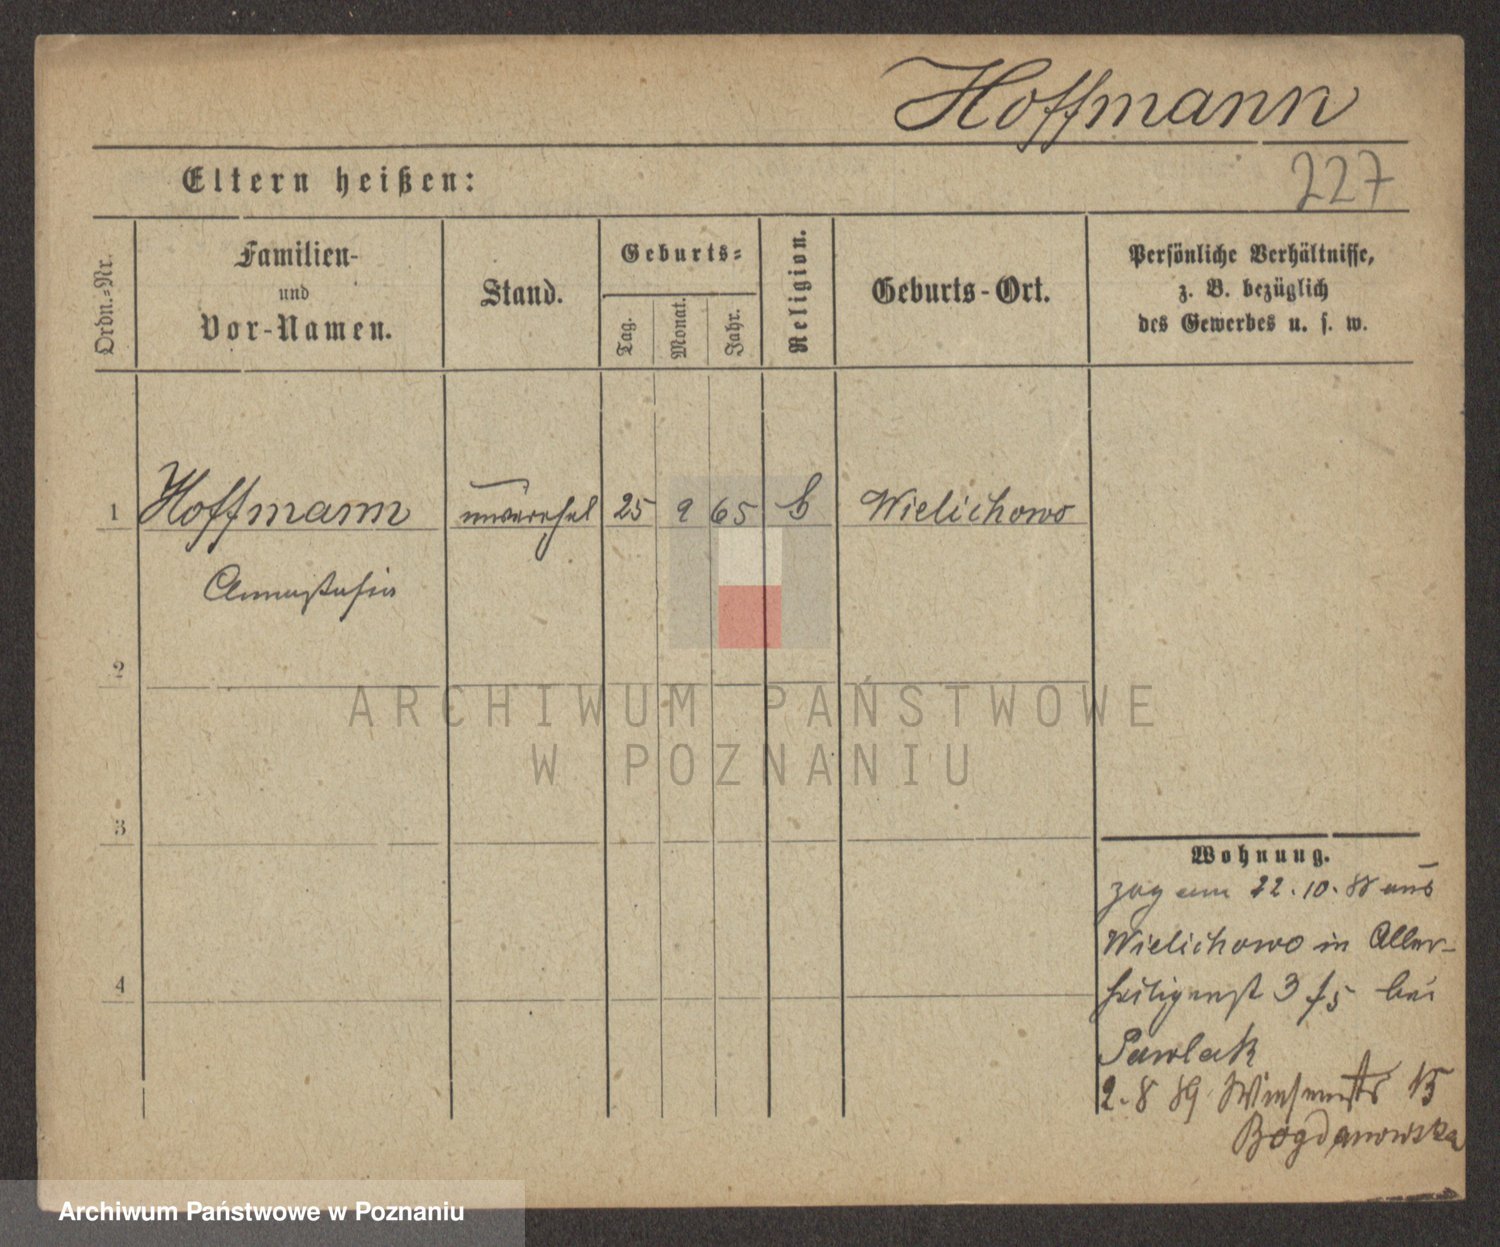 Hoffmann
227
Eltern heißen:
Ordn.-Nr.
Familien-
und
Vor-Namen.
Stand.
Geburts-
Tag.
Monat.
Jahr.
Religion.
Geburts-Ort.
Persönliche Verhältnisse,
z. B. bezüglich
des Gewerbes u. s. w.
1 Hoffmann 25 9 65 Wielichowo
Annastasia
2
3
4
Wohnung.
zog am 22.10.88 aus
Wielichowo in Aller-
heiligenst 3 bei
Pawlak
2.8 89 Wiesenstr 15
Bogdanowska
ARCHIWUM PAŃSTWOWE
W POZNANIU
Archiwum Państwowe w Poznaniu